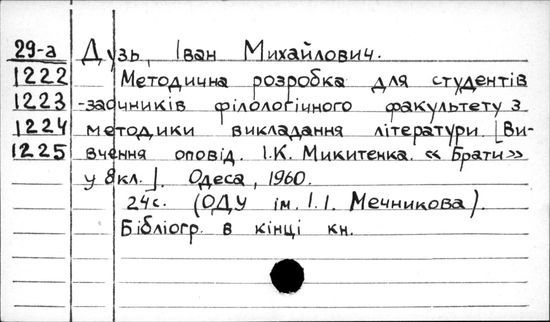 29-а Дузь, Іван Михайлович.
1222 Методична розробка для студентів
1223 -заочників філологічного факультету з
1224 методики викладання літератури. [Ви-
1225 вчення оповід. І.К. Микитенка. «Брати»
у 8кл.]. Одеса, 1960.
24с. (ОДУ ім. І.І. Мечникова).
Бібліогр. в кінці кн.